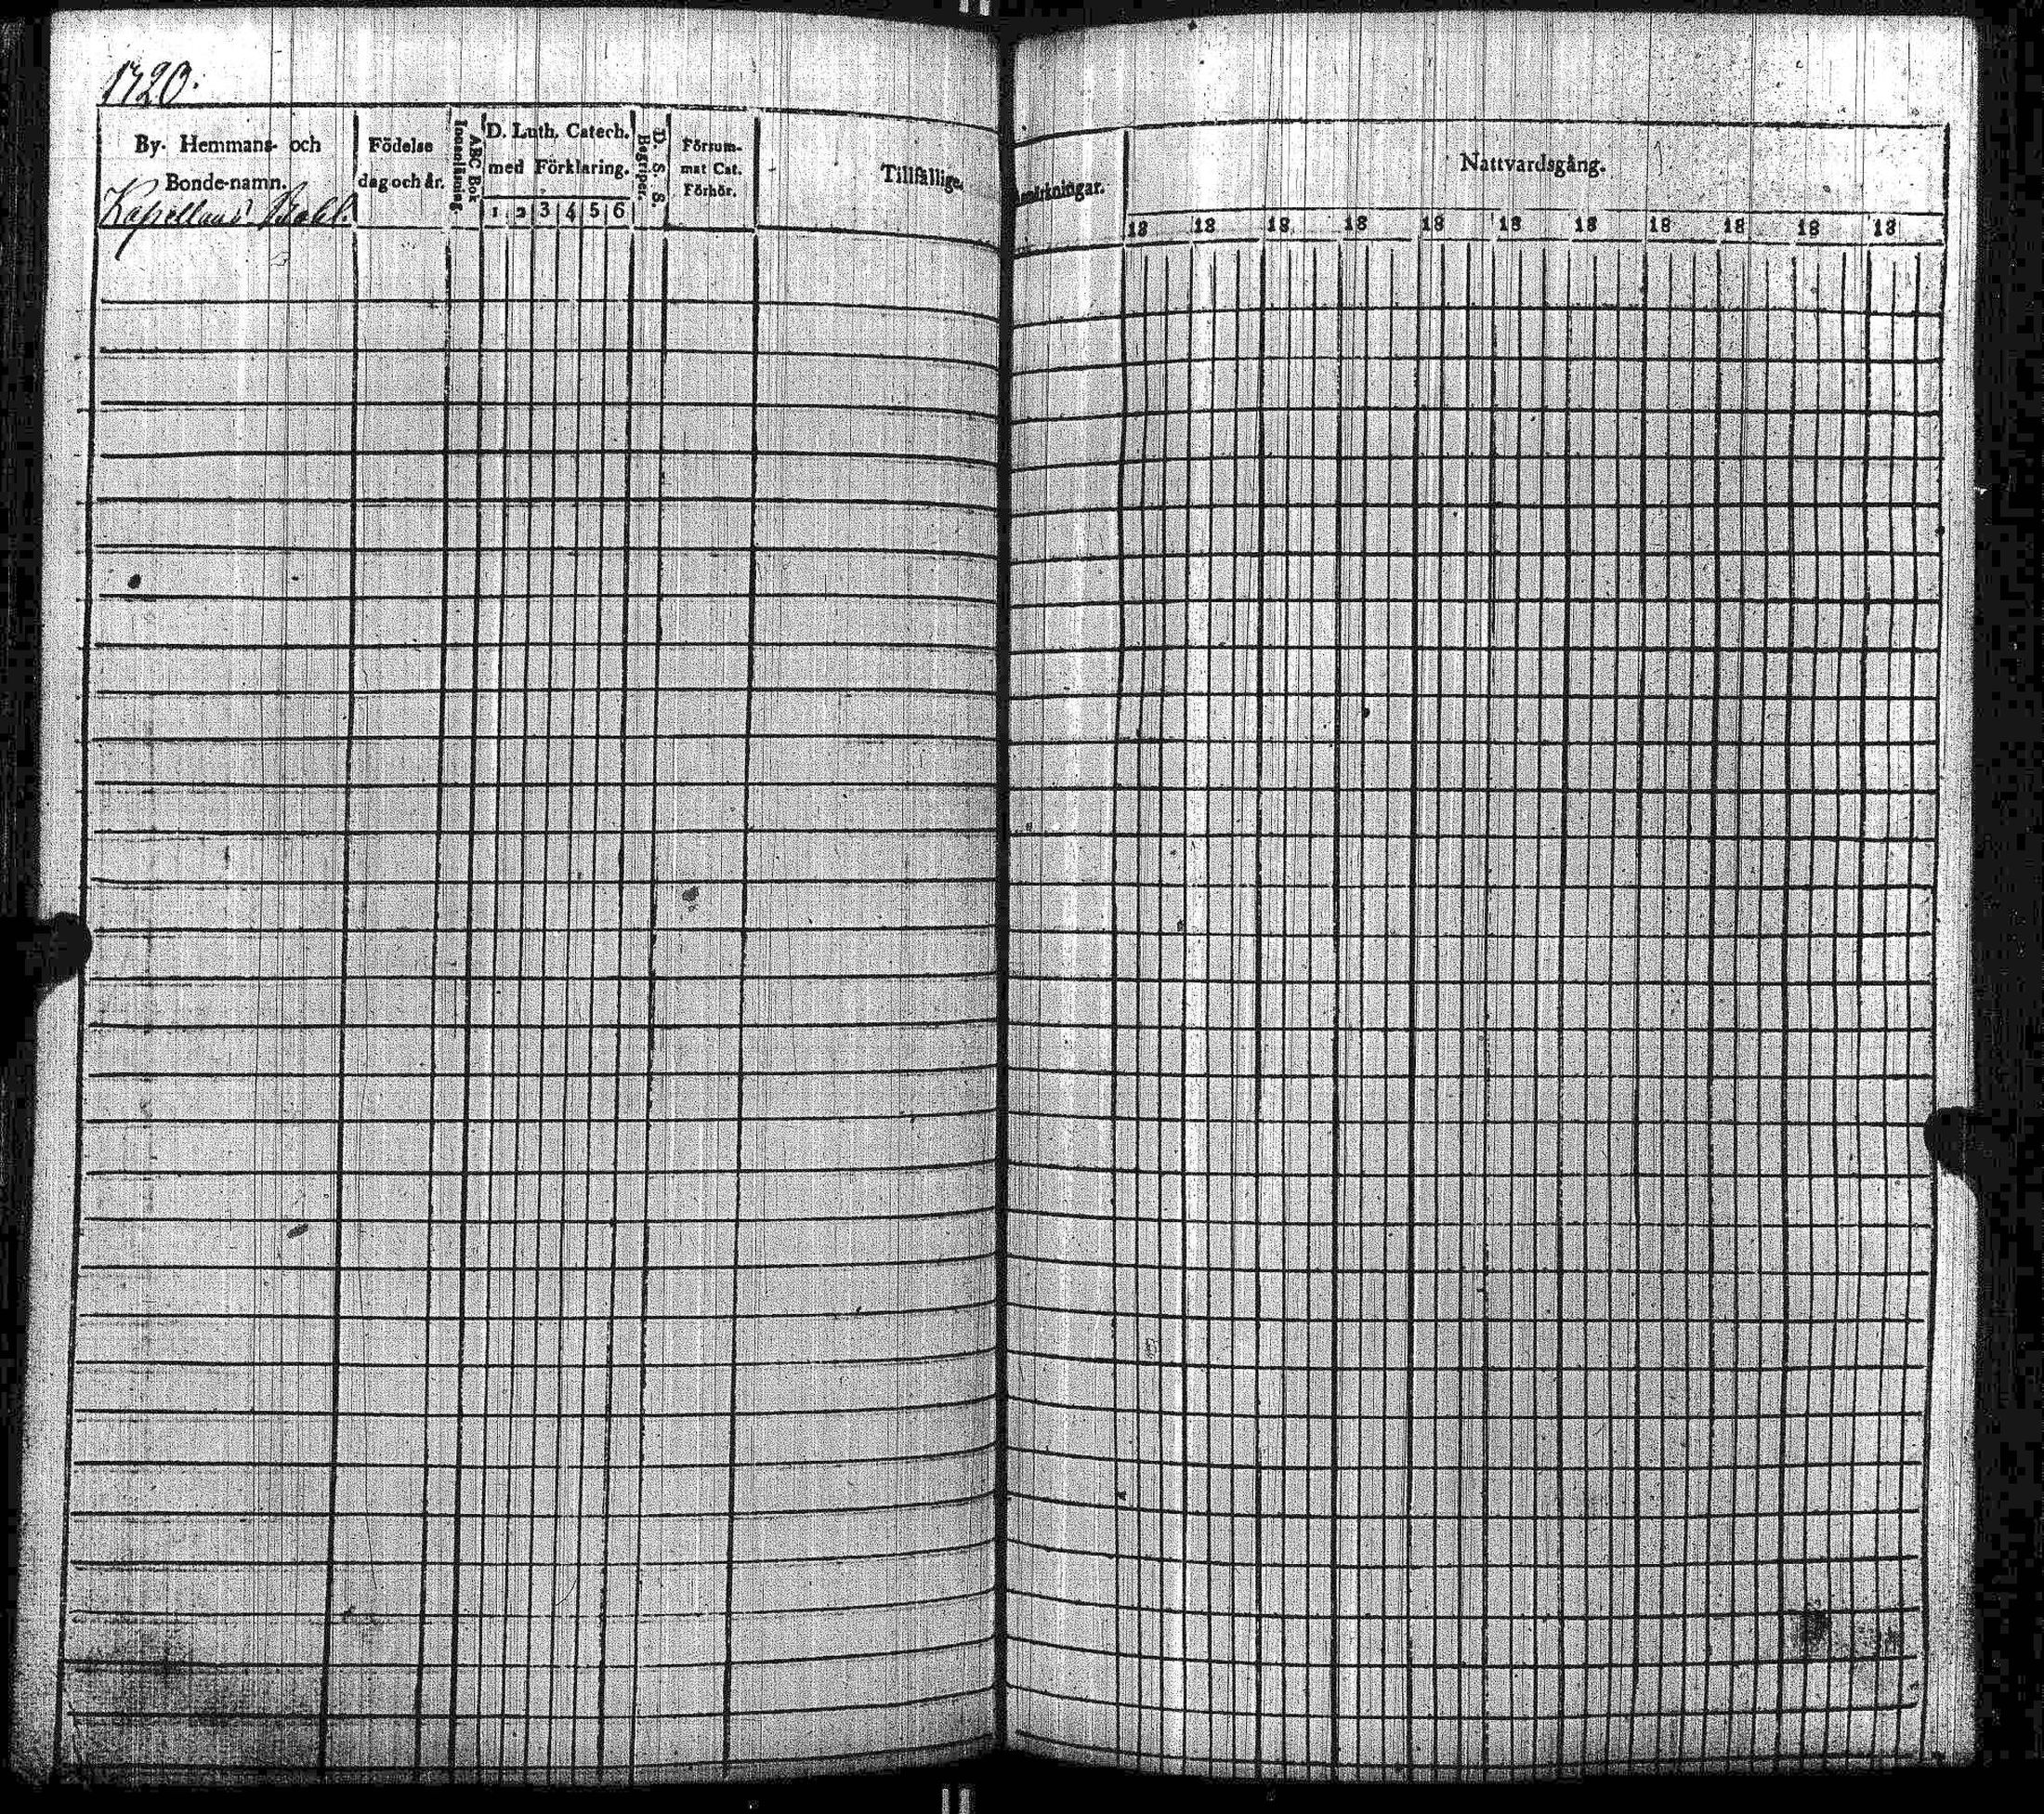 1720.
By. Hemmans- och
Bonde-namn.
Kapellans Bohl.
Födelse
dag och år.
Innanläsning.
ABC Bok
D. Luth. Catech.
med Förklaring.
1 2 3 4 5 6
Begriper.
D. S. S.
Försum-
mat Cat.
Förhör.
Tillfällige
Anmärkningar.
Nattvardsgång.
18 18 18 18 18 18 18 18 18 18 18